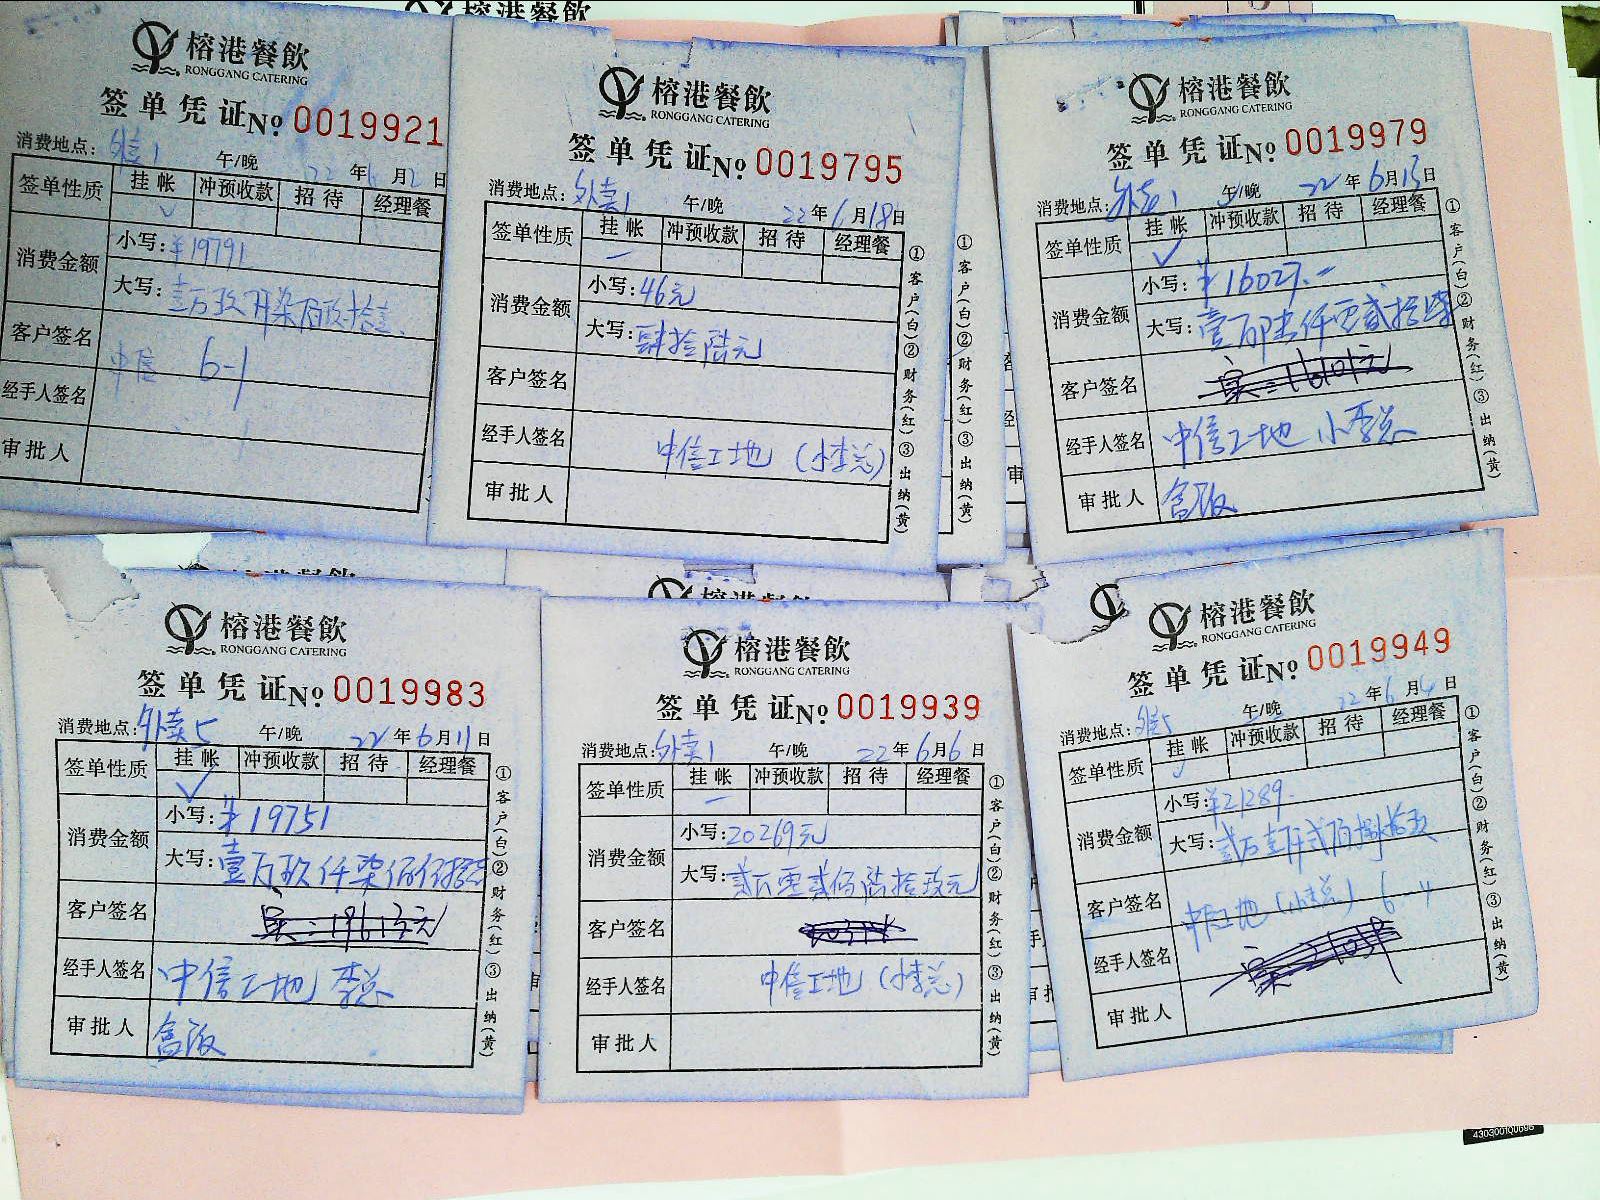 榕港餐飲
榕港餐飲
RONGGANG CATERING
签单凭证№ 0019921
消费地点：外卖1 午/晚 22年6月2日
签单性质 挂帐 冲预收款 招待 经理餐
✓
消费金额
小写：¥19791
大写：壹万玖仟柒佰玖拾壹
客户签名 中信 6-1
经手人签名
审批人
榕港餐飲
RONGGANG CATERING
签单凭证№ 0019795
消费地点：外卖1 午/晚 22年6月18日
签单性质 挂帐 冲预收款 招待 经理餐
消费金额
小写：46元
大写：肆拾陆元
客户签名
经手人签名 中信工地（小李总）
审批人
①客户(白)②财务(红)③出纳(黄)
①客户(白)②财务(红)③出纳(黄)
榕港餐飲
RONGGANG CATERING
签单凭证№ 0019979
消费地点：外卖1 午/晚 22年6月13日
签单性质 挂帐 冲预收款 招待 经理餐
✓
消费金额
小写：¥16027.-
大写：壹万陆仟零贰拾柒
客户签名
经手人签名 中信工地 小李总
审批人 盒饭
①客户(白)②财务(红)③出纳(黄)
榕港餐飲
RONGGANG CATERING
签单凭证№ 0019983
消费地点：外卖5 午/晚 22年6月11日
签单性质 挂帐 冲预收款 招待 经理餐
✓
消费金额
小写：¥19751
大写：壹万玖仟柒佰伍拾壹
客户签名
经手人签名 中信工地 李总
审批人 盒饭
①客户(白)②财务(红)③出纳(黄)
榕港餐飲
RONGGANG CATERING
签单凭证№ 0019939
消费地点：外卖1 午/晚 22年6月6日
签单性质 挂帐 冲预收款 招待 经理餐
消费金额
小写：20269元
大写：贰万零贰佰陆拾玖元
客户签名
经手人签名 中信工地（小李总）
审批人
①客户(白)②财务(红)③出纳(黄)
榕港餐飲
RONGGANG CATERING
签单凭证№ 0019949
消费地点：外卖5 午/晚 22年6月4日
签单性质 挂帐 冲预收款 招待 经理餐
✓
消费金额
小写：¥21289.
大写：贰万壹仟贰佰捌拾玖
客户签名 中信工地（小李总）6-4
经手人签名
审批人
①客户(白)②财务(红)③出纳(黄)